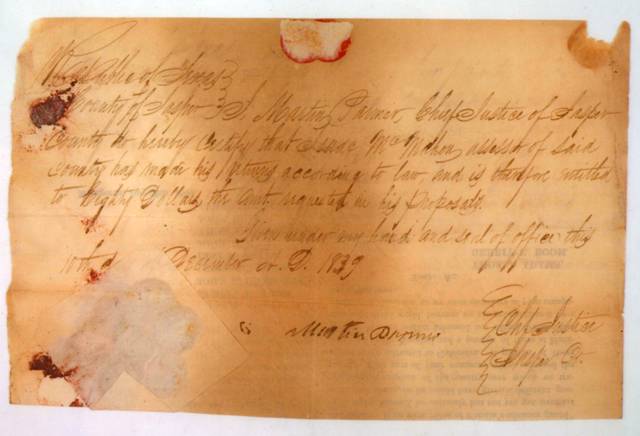 Republic of Texas
County of Jasper I, Martin Palmer, Chief Justice of Jasper
County do hereby Certify that Isaac McMahon assessor of Said
County has made his Returns according to law and is therefore entitled
to Eighty Dollars the Amt. requested in his Proposals.
Given under my hand and seal of office this
10th day December A. D. 1839
Martin Chf Justice
Jasper Co.